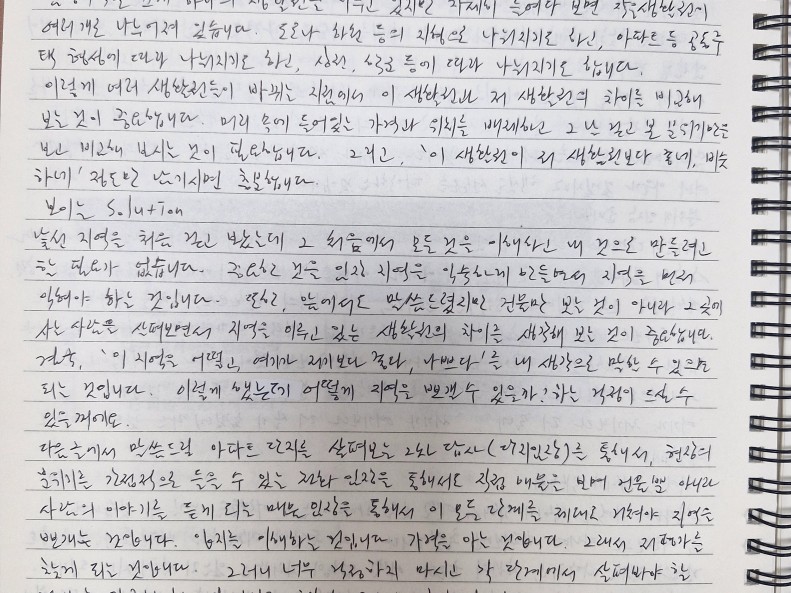 이루고 있지만 자세히 들여다 보면 작은 생활권이
여러개로 나누어져 있습니다. 도로나 하천 등의 지형으로 나눠지기도 하고, 아파트 등 공동주
택 형성에 따라 나눠지기도 하고, 상권, 학교 등에 따라 나눠지기도 합니다.
이렇게 여러 생활권들이 바뀌는 지점에서 이 생활권과 저 생활권의 차이를 비교해
보는 것이 중요합니다. 머리 속에 들어있는 가격과 위치를 배제하고 그 날 걷고 본 분위기만을
보고 비교해 보시는 것이 필요합니다. 그리고, '이 생활권이 저 생활권보다 좋네, 비슷
하네' 정도만 남기시면 충분합니다
보이는 Solution
낯선 지역을 처음 걷고 왔는데 그 처음에서 모든 것을 이해하고 내 것으로 만들려고
할 필요가 없습니다. 중요한 것은 임장 지역을 익숙하게 만들면서 지역을 먼저
익혀야 하는 것입니다. 또한, 앞에서도 말씀드렸지만 건물만 보는 것이 아니라 그 곳에
사는 사람을 살펴보면서 지역을 이루고 있는 생활권의 차이를 생각해 보는 것이 중요합니다.
결국, '이 지역은 어떻고, 여기가 저기보다 좋다, 나쁘다'를 내 생각으로 말할 수 있으면
되는 것입니다. 이렇게 했는데 어떻게 지역을 뽀갤 수 있을까? 하는 걱정이 드실 수
있을꺼에요.
다음글에서 말씀드릴 아파트 단지를 살펴보는 2차 답사(단지임장)를 통해서, 현장의
분위기를 간접적으로 들을 수 있는 전화 임장을 통해서도 직접 매물을 보며 건물뿐 아니라
사람의 이야기를 듣게 되는 매물 임장을 통해서 이 모든 단계를 제대로 거쳐야 지역을
뽀개는 것입니다. 입지를 이해하는 것입니다 가격을 아는 것입니다. 그래서 저평가를
찾게 되는 것입니다 그러니 너무 걱정하지 마시고 각 단계에서 살펴봐야 할